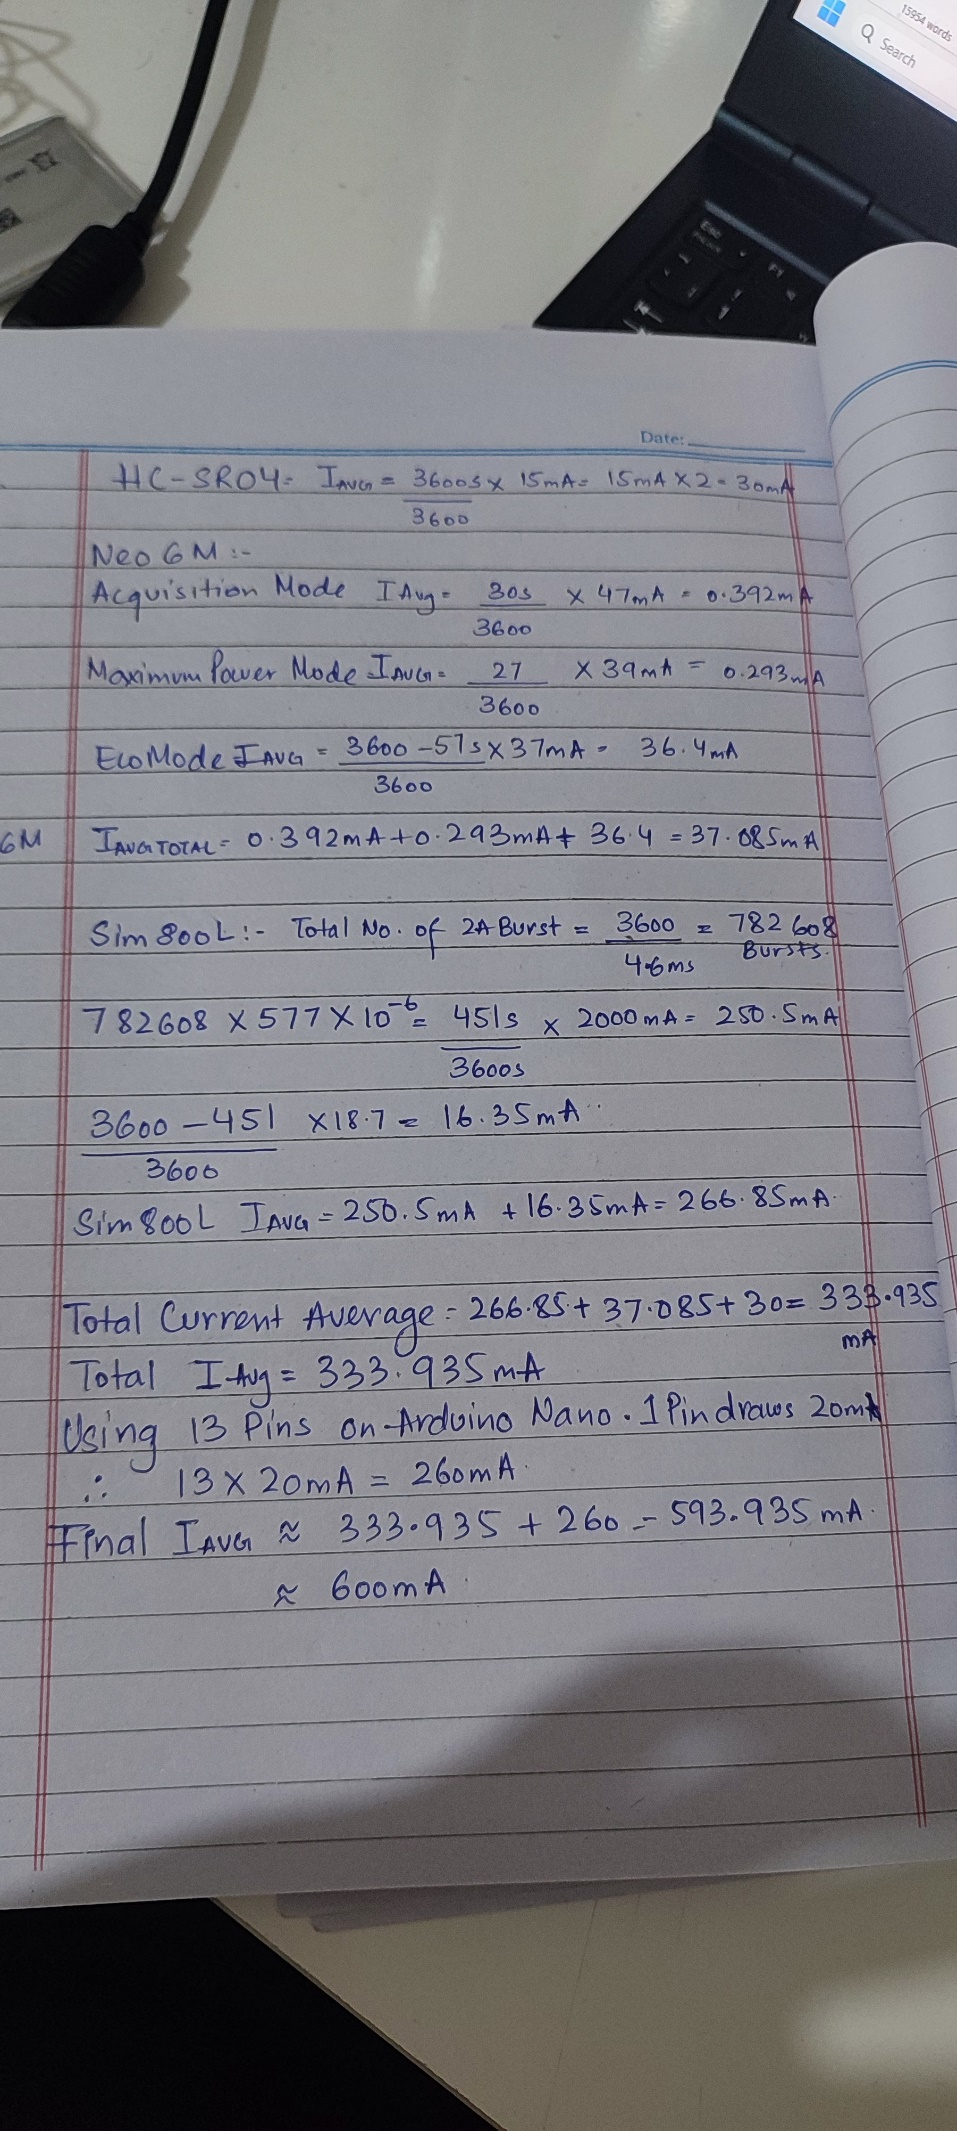 15954 words
Search
Esc
Date:
HC-SR04= IAVG = 3600s x 15mA= 15mA x 2 = 30mA
3600
Neo 6M :-
Acquisition Mode IAvg = 30s x 47mA = 0.392mA
3600
Maximum Power Mode IAVG= 27 x 39mA = 0.293mA
3600
EcoMode IAVG = 3600-57s x 37mA = 36.4mA
3600
6M IAVGTOTAL = 0.392mA+0.293mA+ 36.4 = 37.085mA
Sim 800L:- Total No. of 2A Burst = 3600 = 782608
4.6ms Bursts.
782608 x 577 x 10⁻⁶ = 451s x 2000mA = 250.5mA
3600s
3600-451 x18.7 = 16.35mA
3600
Sim800L IAVG = 250.5mA + 16.35mA= 266.85mA.
Total Current Average = 266.85+ 37.085+30= 333.935
mA
Total IAvg = 333.935mA
Using 13 Pins on Arduino Nano. 1 Pin draws 20mA
∴ 13 x 20mA = 260mA.
Final IAVG ≈ 333.935 + 260 = 593.935mA.
≈ 600mA.